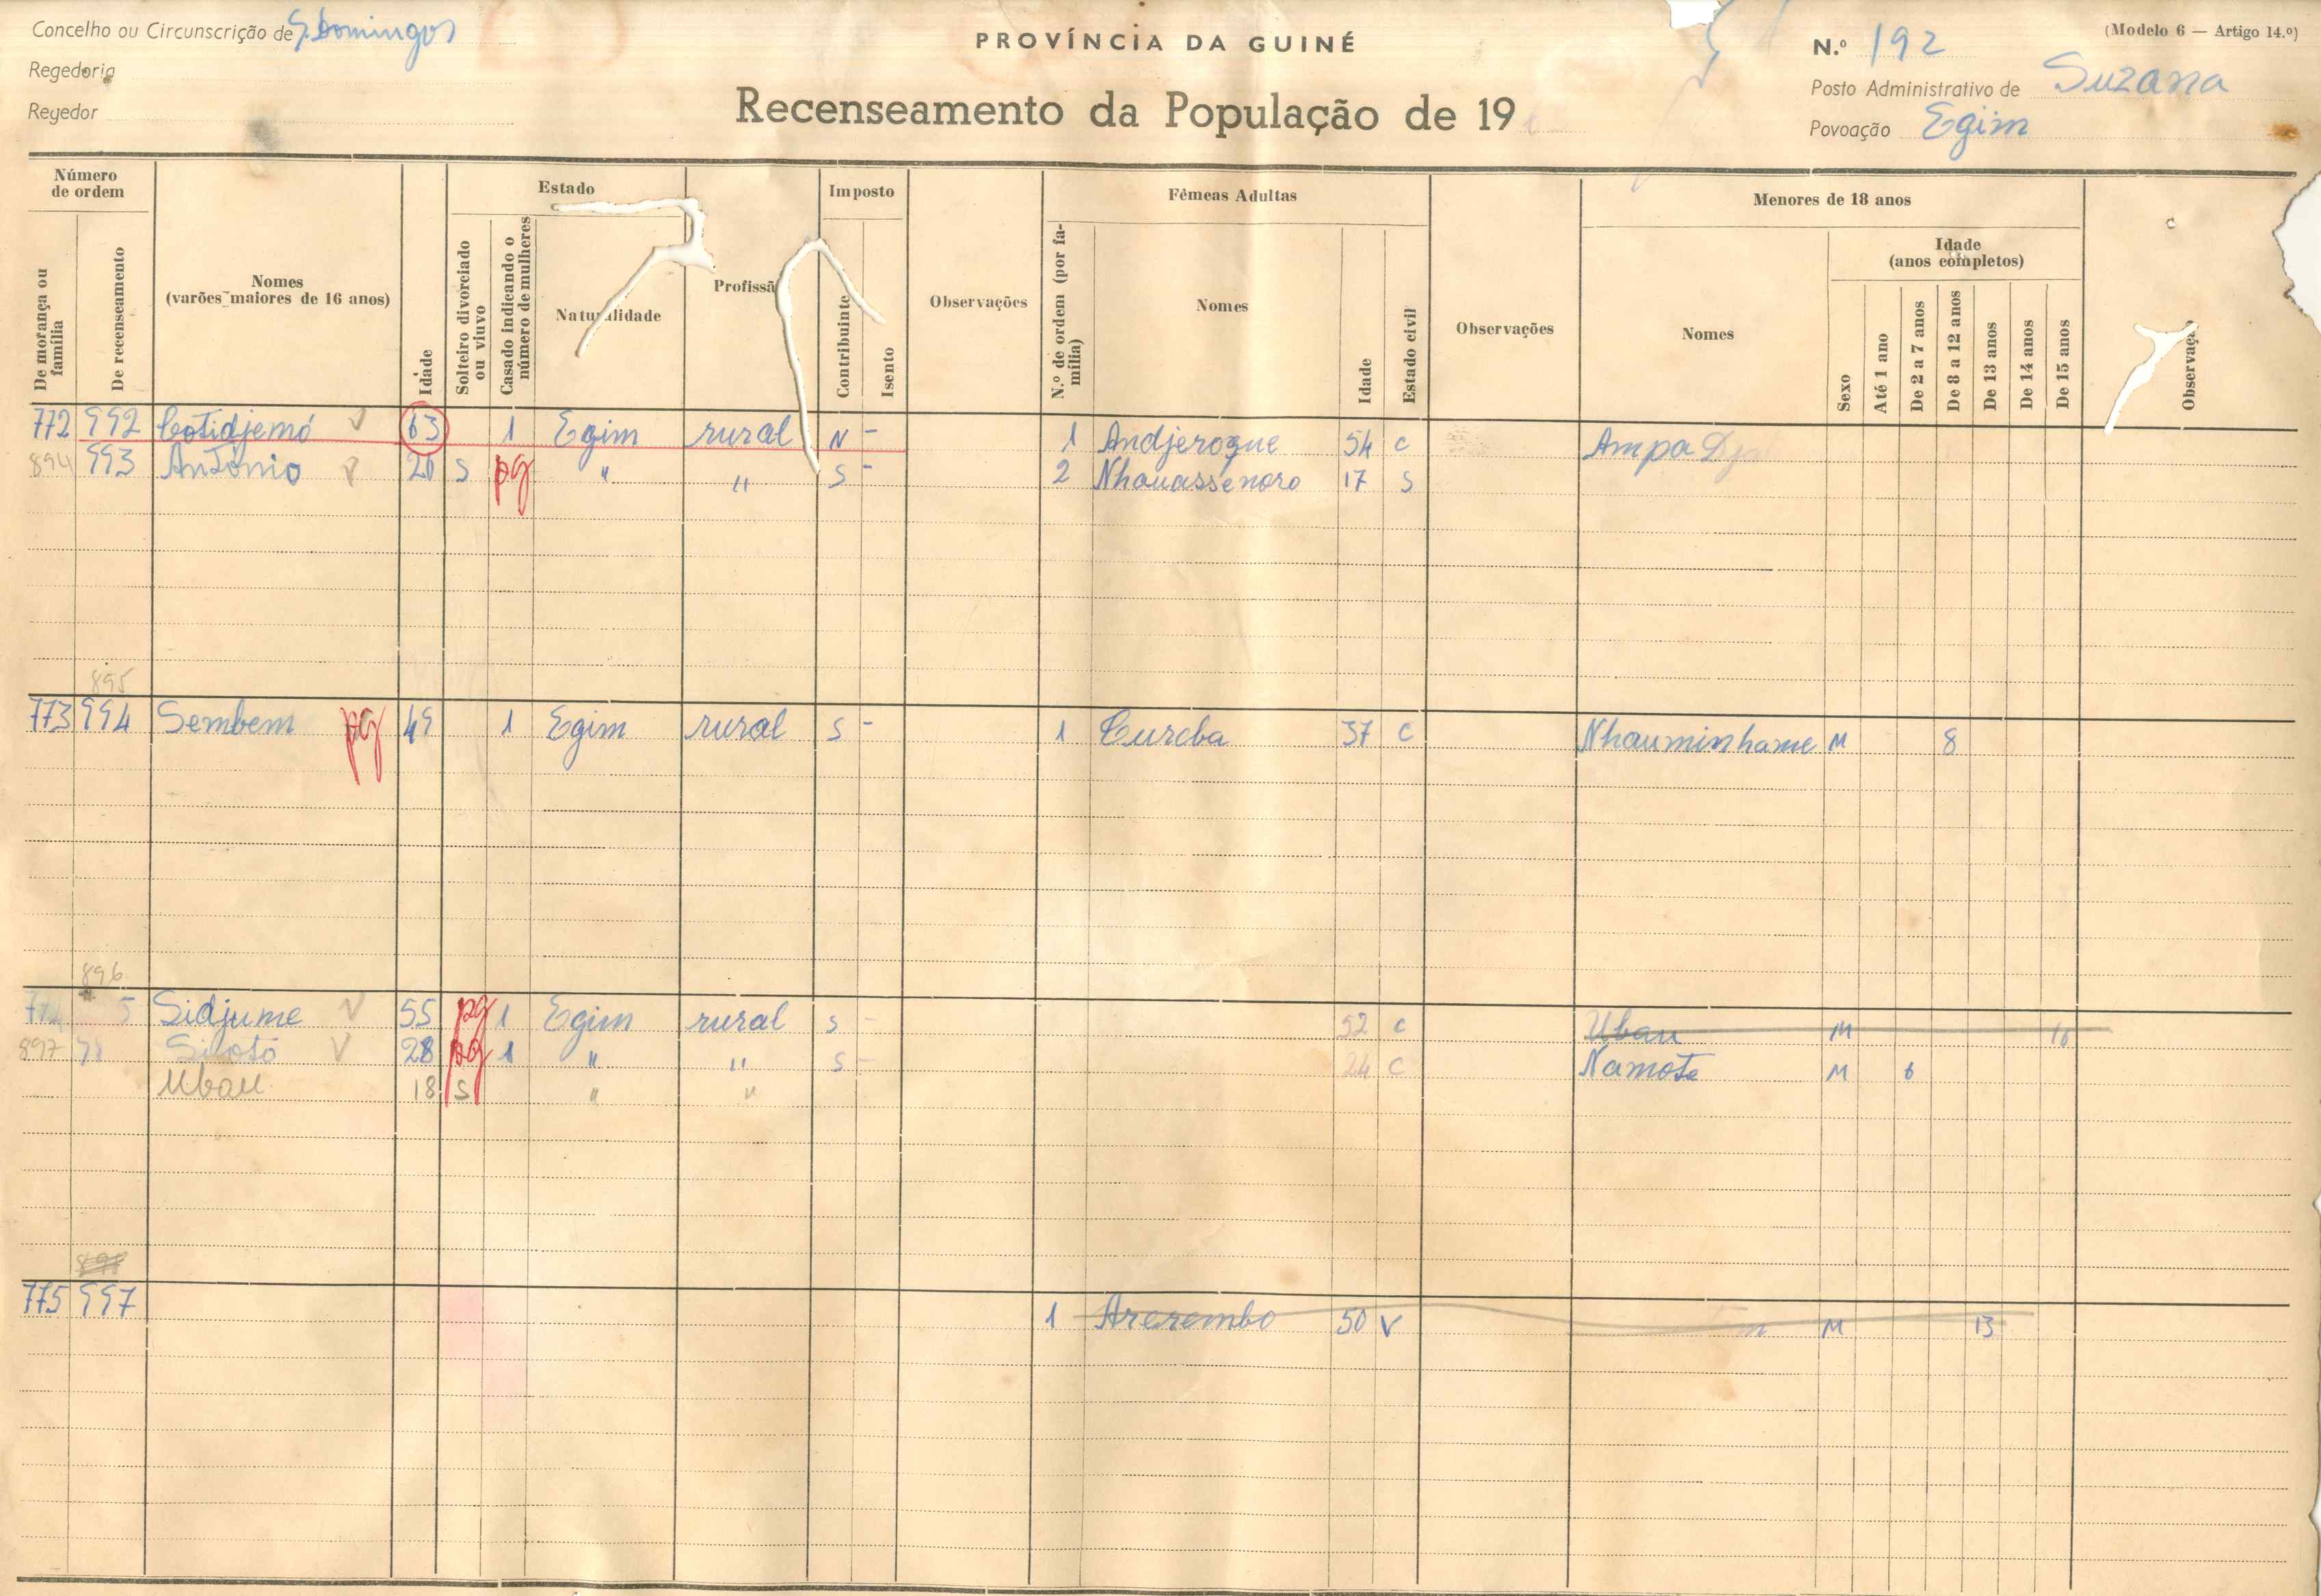 Concelho ou Circunscrição de S. Domingos
PROVÍNCIA DA GUINÉ
N.º 192
(Modelo 6 — Artigo 14.º)
Regedoria
Posto Administrativo de Suzana
Regedor
Recenseamento da População de 19
Povoação Egim
Número de ordem
De morança ou família
De recenseamento
Nomes
(varões maiores de 16 anos)
Idade
Estado
Solteiro divorciado ou viuvo
Casado indicando o número de mulheres
Naturalidade
Profissã
Imposto
Contribuinte
Isento
Observações
Fêmeas Adultas
N.º de ordem (por família)
Nomes
Idade
Estado civil
Observações
Menores de 18 anos
Nomes
Sexo
Idade
(anos completos)
Até 1 ano
De 2 a 7 anos
De 8 a 12 anos
De 13 anos
De 14 anos
De 15 anos
Observaç
772 992 Cotidjemó 63 1 Egim rural N - 1 Andjeroque 54 c Ampa
894 993 António 20 S pg " " S - 2 Nhauassenoro 17 S
895
773 994 Sembem pg 49 1 Egim rural S - 1 Cureba 37 c Nhauminhame M 8
896
5 Sidjume 55 pg 1 Egim rural S - 52 c Ubau M
897 28 pg 1 " " S - 24 c Namote M 6
Ubau 18 S " "
775 997 1 Arerembo 50 V M 13